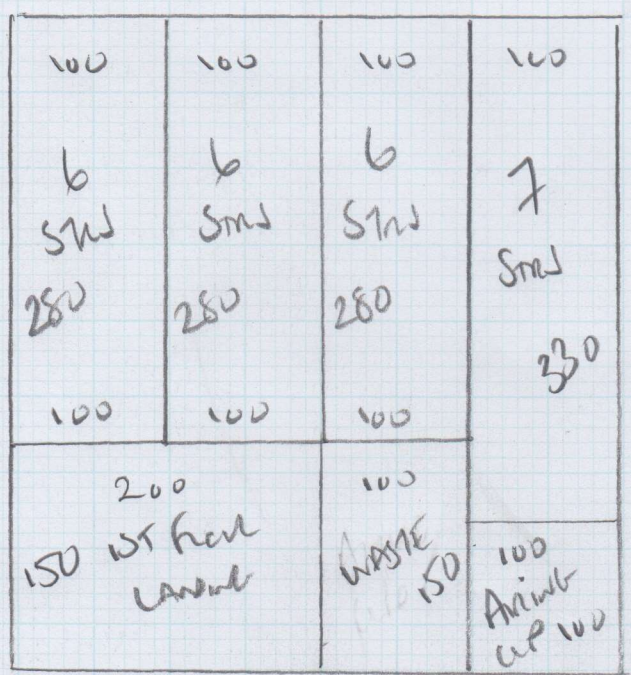 100
6
STRS
280
100
100
6
STRS
280
100
100
6
STRS
280
100
100
7
STRS
330
200
150 1ST FLOOR
LANDING
100
WASTE
150
100
AIRING
CUP 100